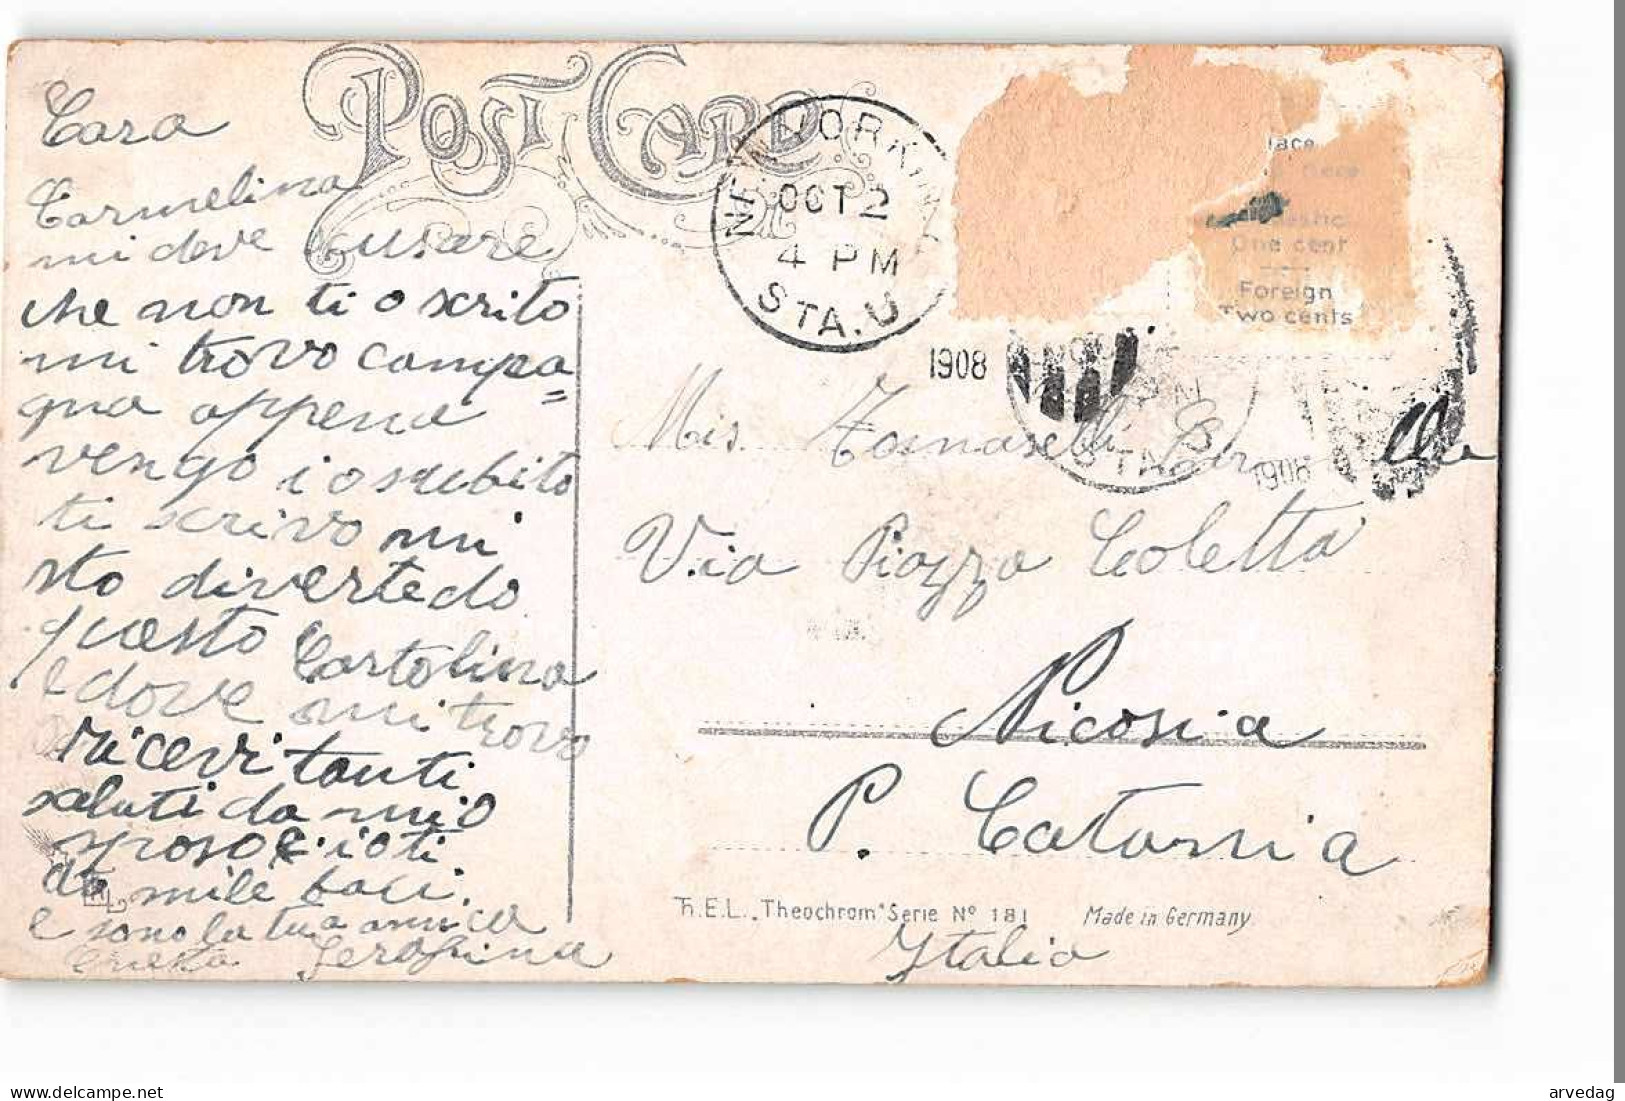 POST CARD
Cara
Carmelina
mi deve scusare
che non ti o scrito
mi trovo campa=
gna appena
vengo io subito
ti scrivo mi
sto divertedo
questo Cartolina
e dove mi trovo
ricevi tanti
saluti da mio
sposo e io ti
do mile baci.
e sono la tua amica
Serafina
NEW YORK, N.Y.
OCT 2
4 PM
STA. U
1908
lace
One cent
Foreign
Two cents
1908
Mis. Tomaselli
Via Piazza Coletta
Nicosia
P. Catania
Th. E. L. „Theochrom" Serie Nº 181 Made in Germany
Italia
delcampe.net
arvedag